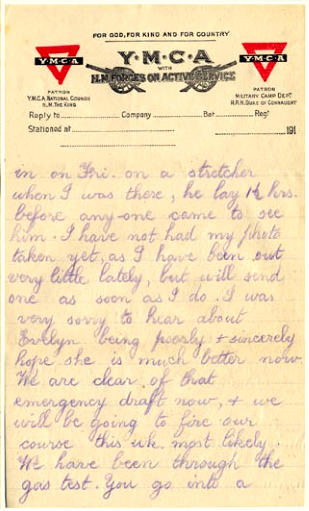 FOR GOD, FOR KING AND FOR COUNTRY
Y·M·C·A
Y·M·C·A
Y·M·C·A
WITH
H.M. FORCES ON ACTIVE SERVICE
PATRON
Y.M.C.A. NATIONAL COUNCIL
H.M. THE KING
PATRON
MILITARY CAMP DEPT
H.R.H. DUKE OF CONNAUGHT
Reply to Company Bat Regt
Stationed at 191
in on Fri. on a stretcher
when I was there, he lay 1½ hrs.
before any-one came to see
him. I have not had my photo
taken yet, as I have been out
very little lately, but will send
one as soon as I do. I was
very sorry to hear about
Evelyn being poorly + sincerely
hope she is much better now.
We are clear of that
emergency draft now, + we
will be going to fire our
course this wk. most likely.
We have been through the
gas test. You go into a